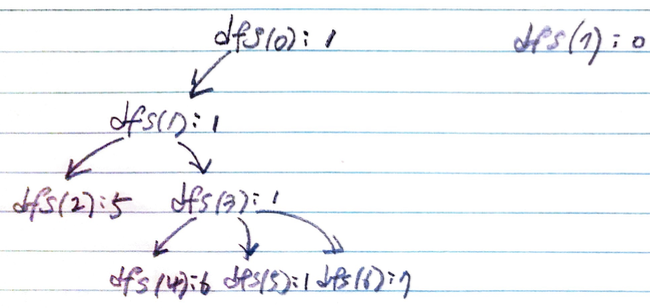 dfs(0): 1 dfs(7): 0
dfs(1): 1
dfs(2): 5 dfs(3): 1
dfs(4): 6 dfs(5): 1 dfs(6): 7